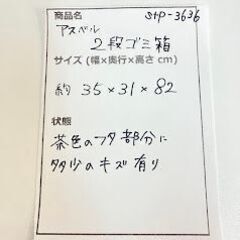 商品名 stp-3636
アスベル
2段ゴミ箱
サイズ (幅×奥行×高さ cm)
約 35×31×82
状態
茶色のフタ部分に
多少のキズ有り